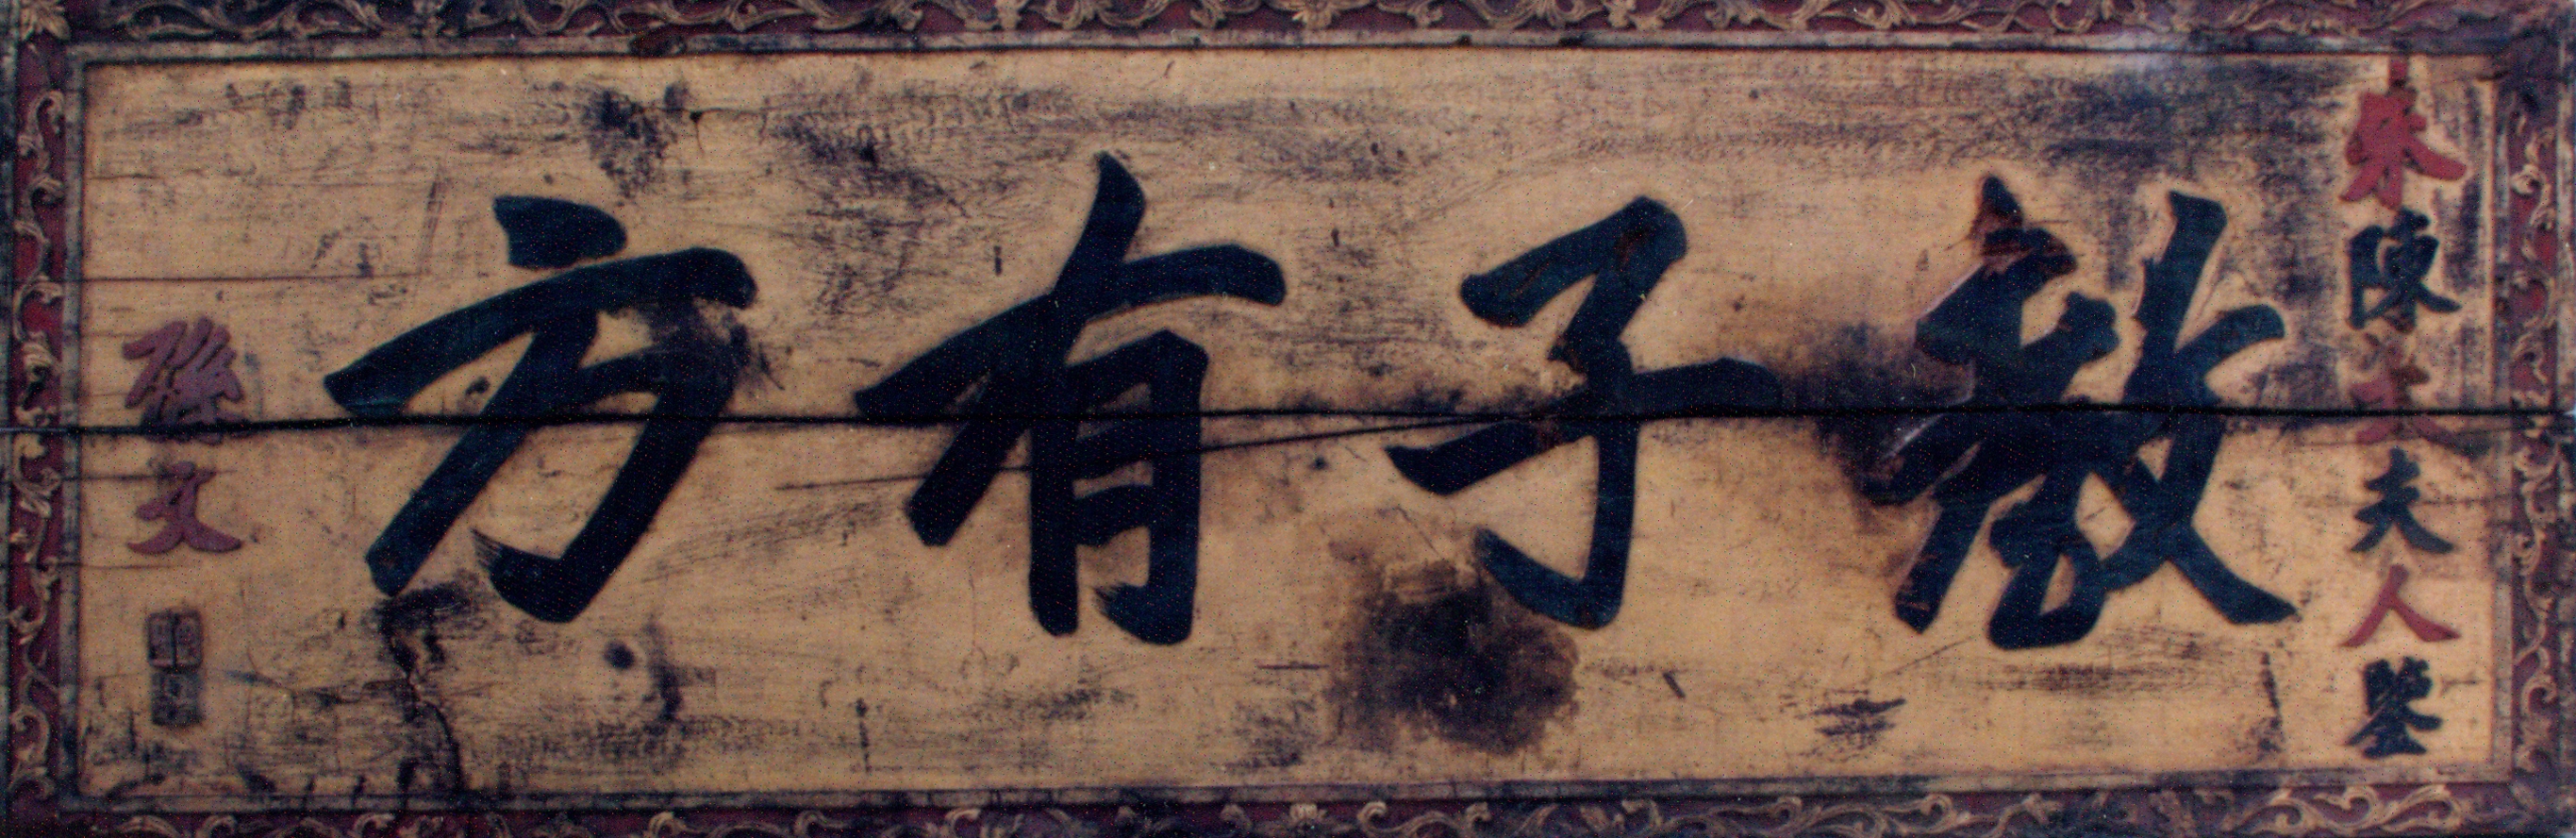 朱陳太夫人鑒
教子有方
孫文